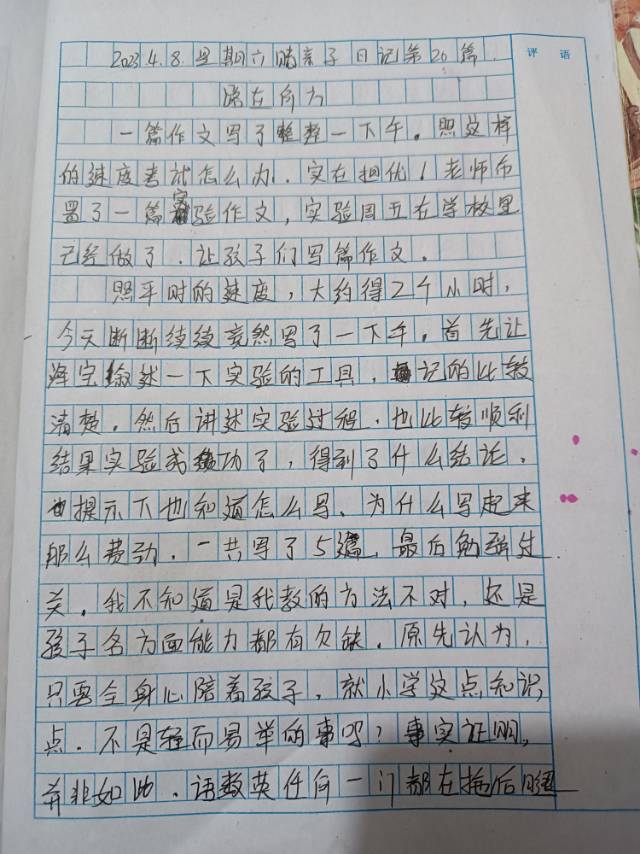 评 语
2023.4.8.星期六晴亲子日记第20篇.
路在何方
一篇作文写了整整一下午。照这样
的速度考试怎么办.实在担忧！老师布
置了一篇实验作文，实验周五在学校里
已经做了.让孩子们写篇作文.
照平时的速度，大约得2个小时，
今天断断续续竟然写了一下午。首先让
泽宝叙述一下实验的工具，记的比较
清楚。然后讲述实验过程.也比较顺利
结果实验成功了，得到了什么结论.
提示下也知道怎么写、为什么写起来
那么费劲.一共写了5遍.最后勉强过
关。我不知道是我教的方法不对，还是
孩子各方面能力都有欠缺.原先认为，
只要全身心陪着孩子，就小学这点知识
点.不是轻而易举的事吗？事实证明，
并非如此.语数英任何一门都在拖后腿